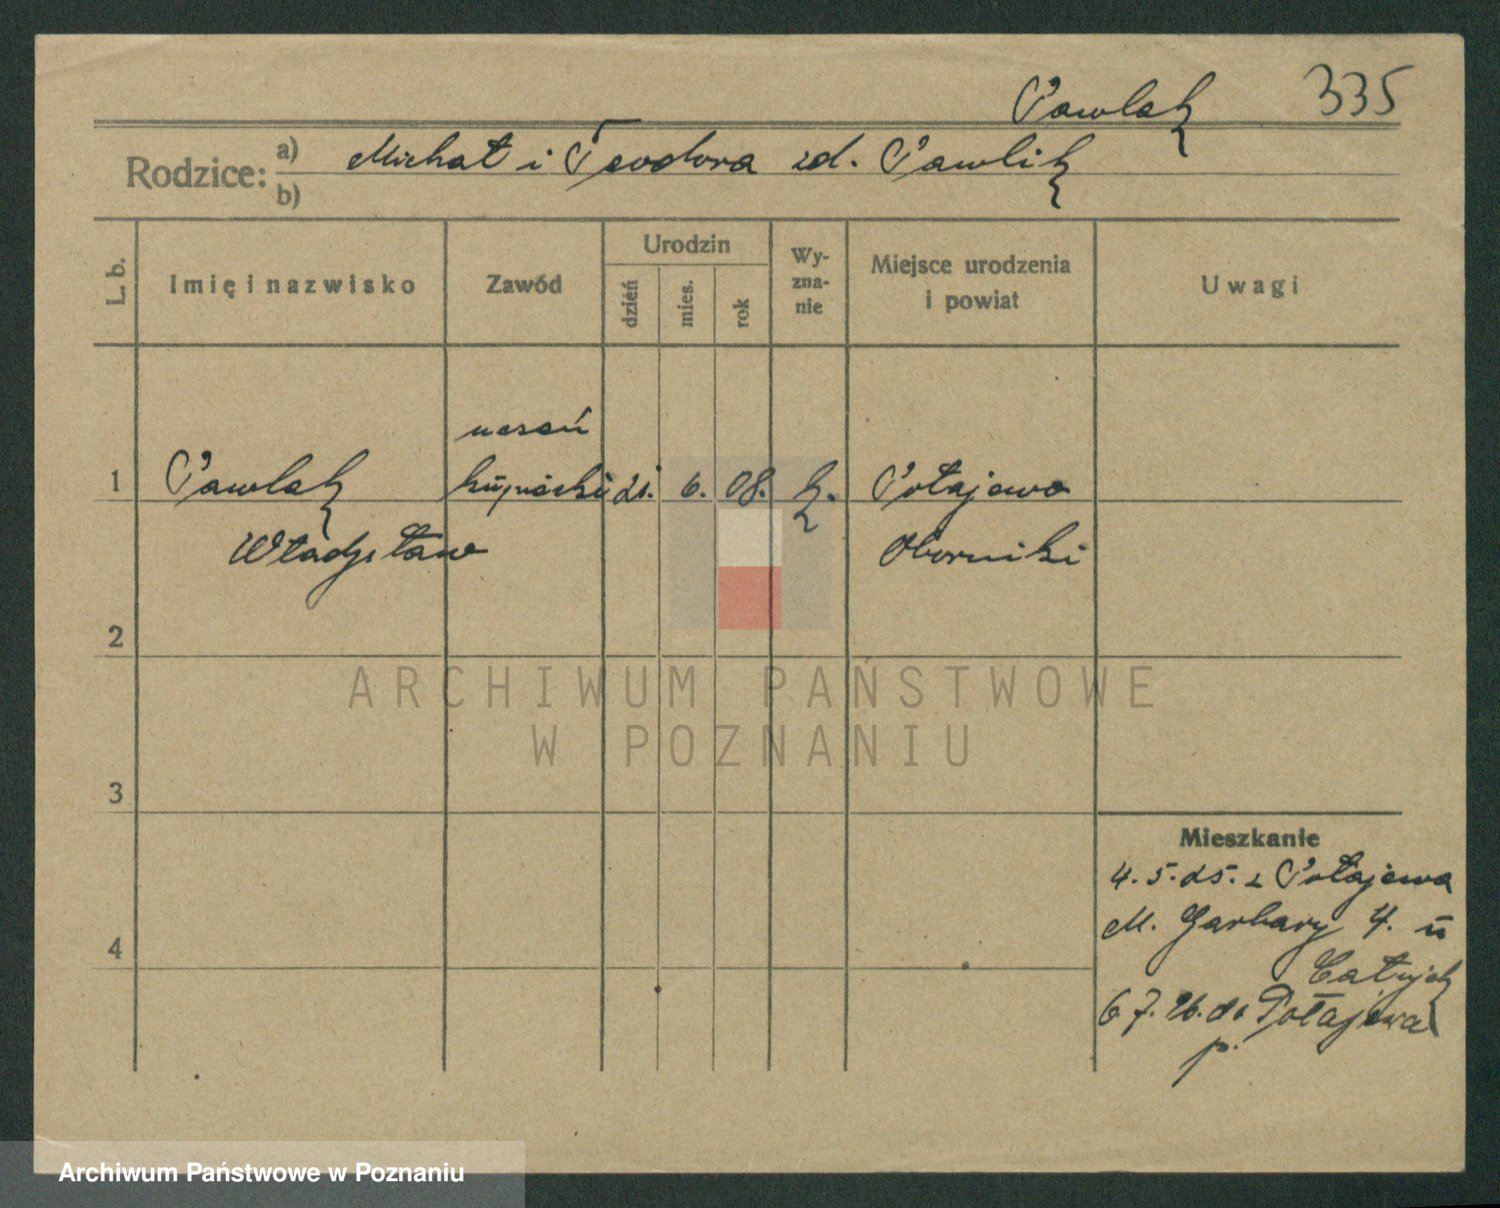 Pawlak 335
Rodzice: a) Michał i Teodora zd. Pawlik
b)
L. b. Imię i nazwisko Zawód Urodzin dzień mies. rok Wy-zna-nie Miejsce urodzenia i powiat Uwagi
uczeń
1 Pawlak kupiecki 21. 6. 08. k. Połajewo
Władysław Oborniki
2
ARCHIWUM PAŃSTWOWE
W POZNANIU
3
Mieszkanie
4. 5. 25. z Połajewa
M. Garbary 4. u
4
6.7.26. do Połajewa
p.
Archiwum Państwowe w Poznaniu